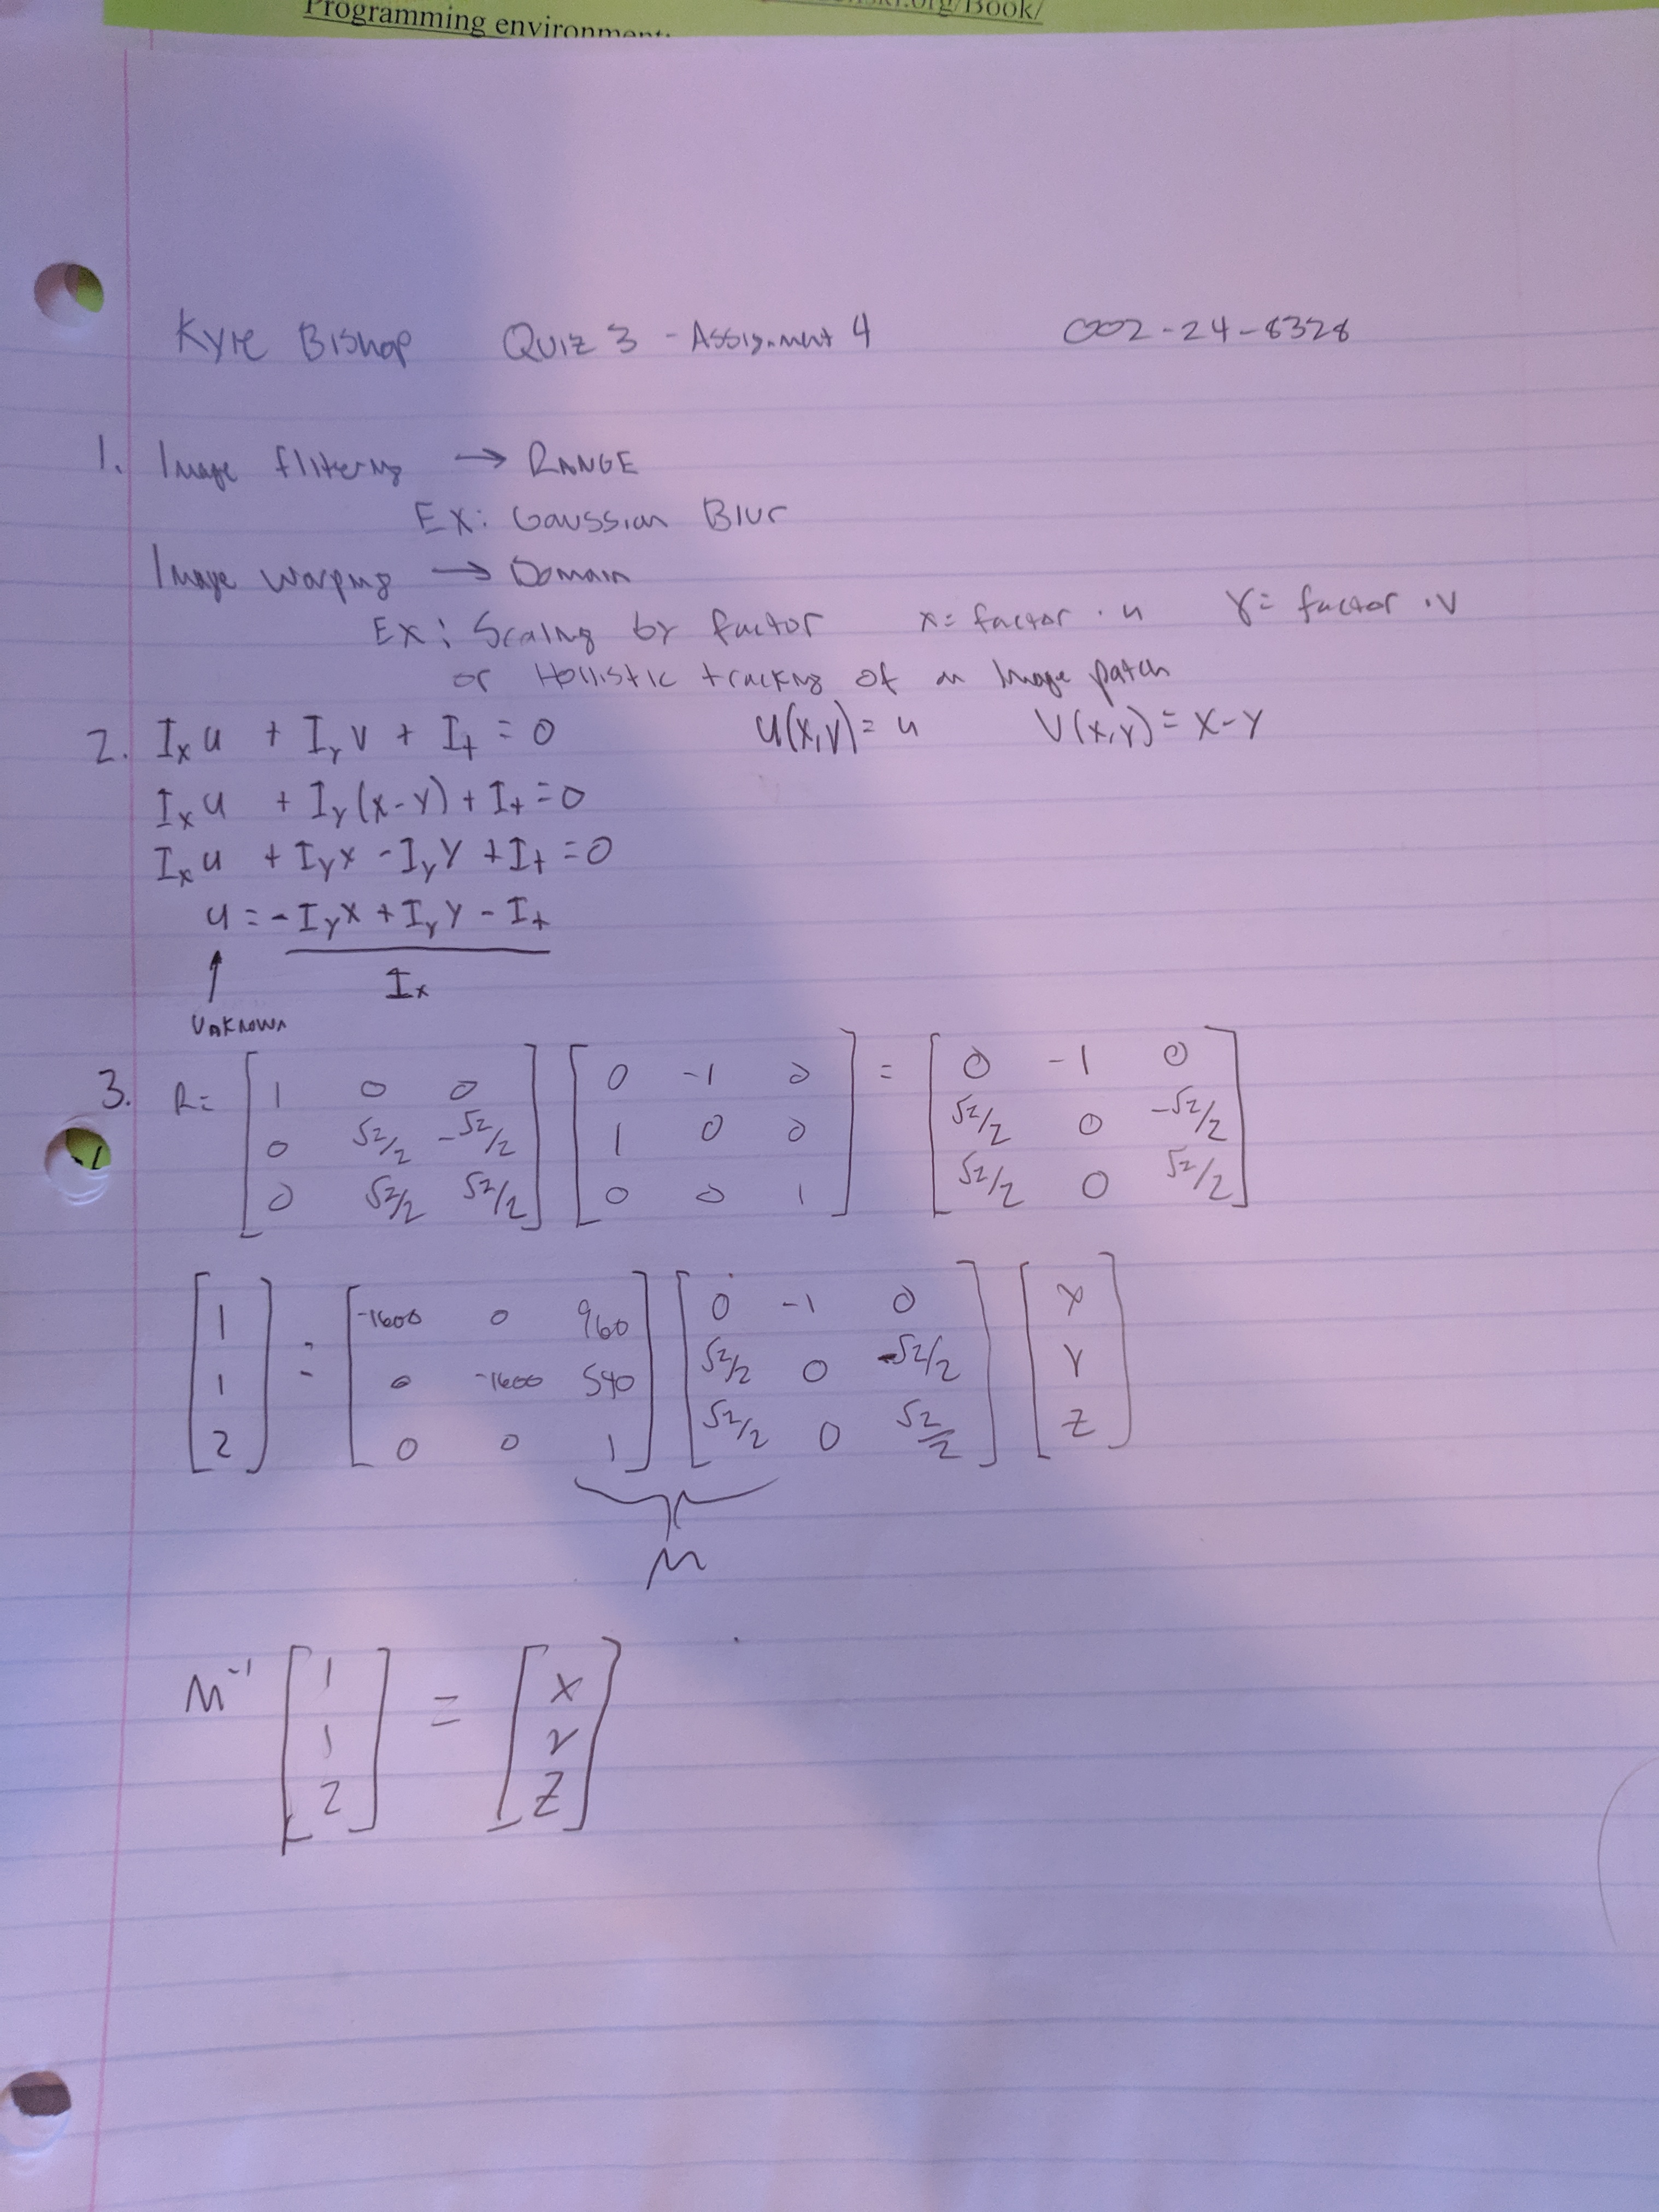 Programming environment:
.org/Book/
Kyle Bishop Quiz 3 - Assignment 4 002-24-8328
1. Image filtering → RANGE
Ex: Gaussian Blur
Image warping → Domain
Ex: Scaling by factor x = factor · u y = factor · v
or Hollistic tracking of an image patch
2. Iₓu + Iᵧv + Iₜ = 0 u(x,y) = u v(x,y) = x-y
Iₓu + Iᵧ(x-y) + Iₜ = 0
Iₓu + Iᵧx - Iᵧy + Iₜ = 0
u = -Iᵧx + Iᵧy - Iₜ
Iₓ
↑
Unknown
3. R = [1 0 0] [0 -1 0] = [0 -1 0]
[0 √2/2 -√2/2] [1 0 0] [√2/2 0 -√2/2]
[0 √2/2 √2/2] [0 0 1] [√2/2 0 √2/2]
[1] = [-1600 0 960] [0 -1 0] [x]
[1] [0 -1600 540] [√2/2 0 -√2/2] [y]
[2] [0 0 1] [√2/2 0 √2/2] [z]
M
M⁻¹ [1] = [x]
[1] [y]
[2] [z]